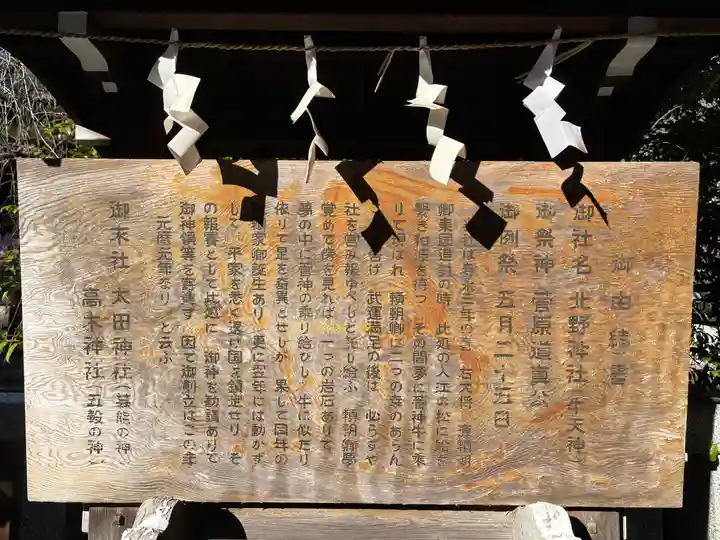 御由緒書
御社名 北野神社（牛天神）
御祭神 菅原道真公
御例祭 五月二十五日
当社は寿永三年の 右大将 源頼朝
卿東国追討の時 此処の入江の松に船を
繋ぎ和波を待つ その間夢に菅神牛に乗
りて現はれ 頼朝卿に二つの幸のあらん
告げ 武運満足の後は 必らずや
社を営み報ゆべしと宣り給ふ 頼朝卿夢
覚めて傍を見れば 一つの岩石ありて
夢の中に菅神の乗り給ひし 牛に似たり
依りて是を奇異とせしが 果して同年の
頼家卿誕生あり 更に翌年には動かず
して 平家を悉く遠い国を鎮定せり そ
の報賽として此処に 御神を勧請ありて
御神領等を寄進す 因て御創立はこの年
元暦元年なり と云ふ
御末社 太田神社（芸能の神）
高木神社（五穀の神）